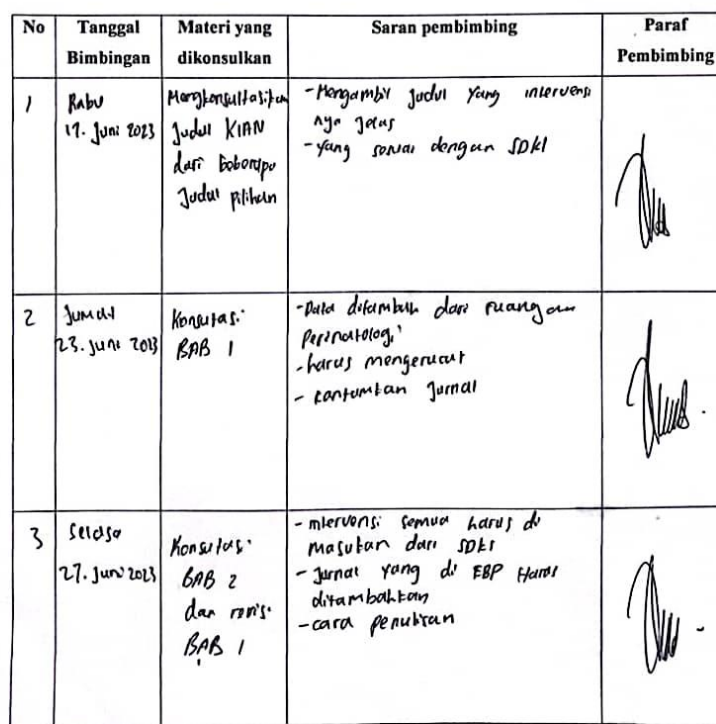 No
Tanggal Bimbingan
Materi yang dikonsulkan
Saran pembimbing
Paraf Pembimbing
1
Rabu
17. Juni 2023
Mengkonsultasikan
Judul KIAN
dari beberapa
Judul pilihan
- Mengambil Judul yang intervensi
nya jelas
- yang sesuai dengan SDKI
2
Jumat
23. Juni 2023
Konsultasi
BAB 1
- Data ditambah dari ruangan
Perinatologi
- harus mengerucut
- cantumkan Jurnal
3
Selasa
27. Juni 2023
Konsultasi
BAB 2
dan revisi
BAB 1
- intervensi semua harus di
masukan dari SDKI
- Jurnal yang di EBP Harus
ditambahkan
- cara penulisan